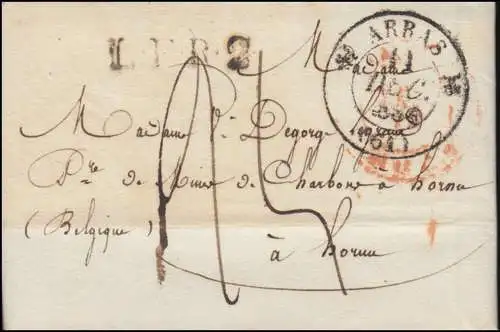 L.F.R.2
ARRAS
11
DEC.
1830
(61)
Madame
Madame Ve Degorge Legrand
Pre de Mines de Charbons à hornu
(Belgique)
à hornu